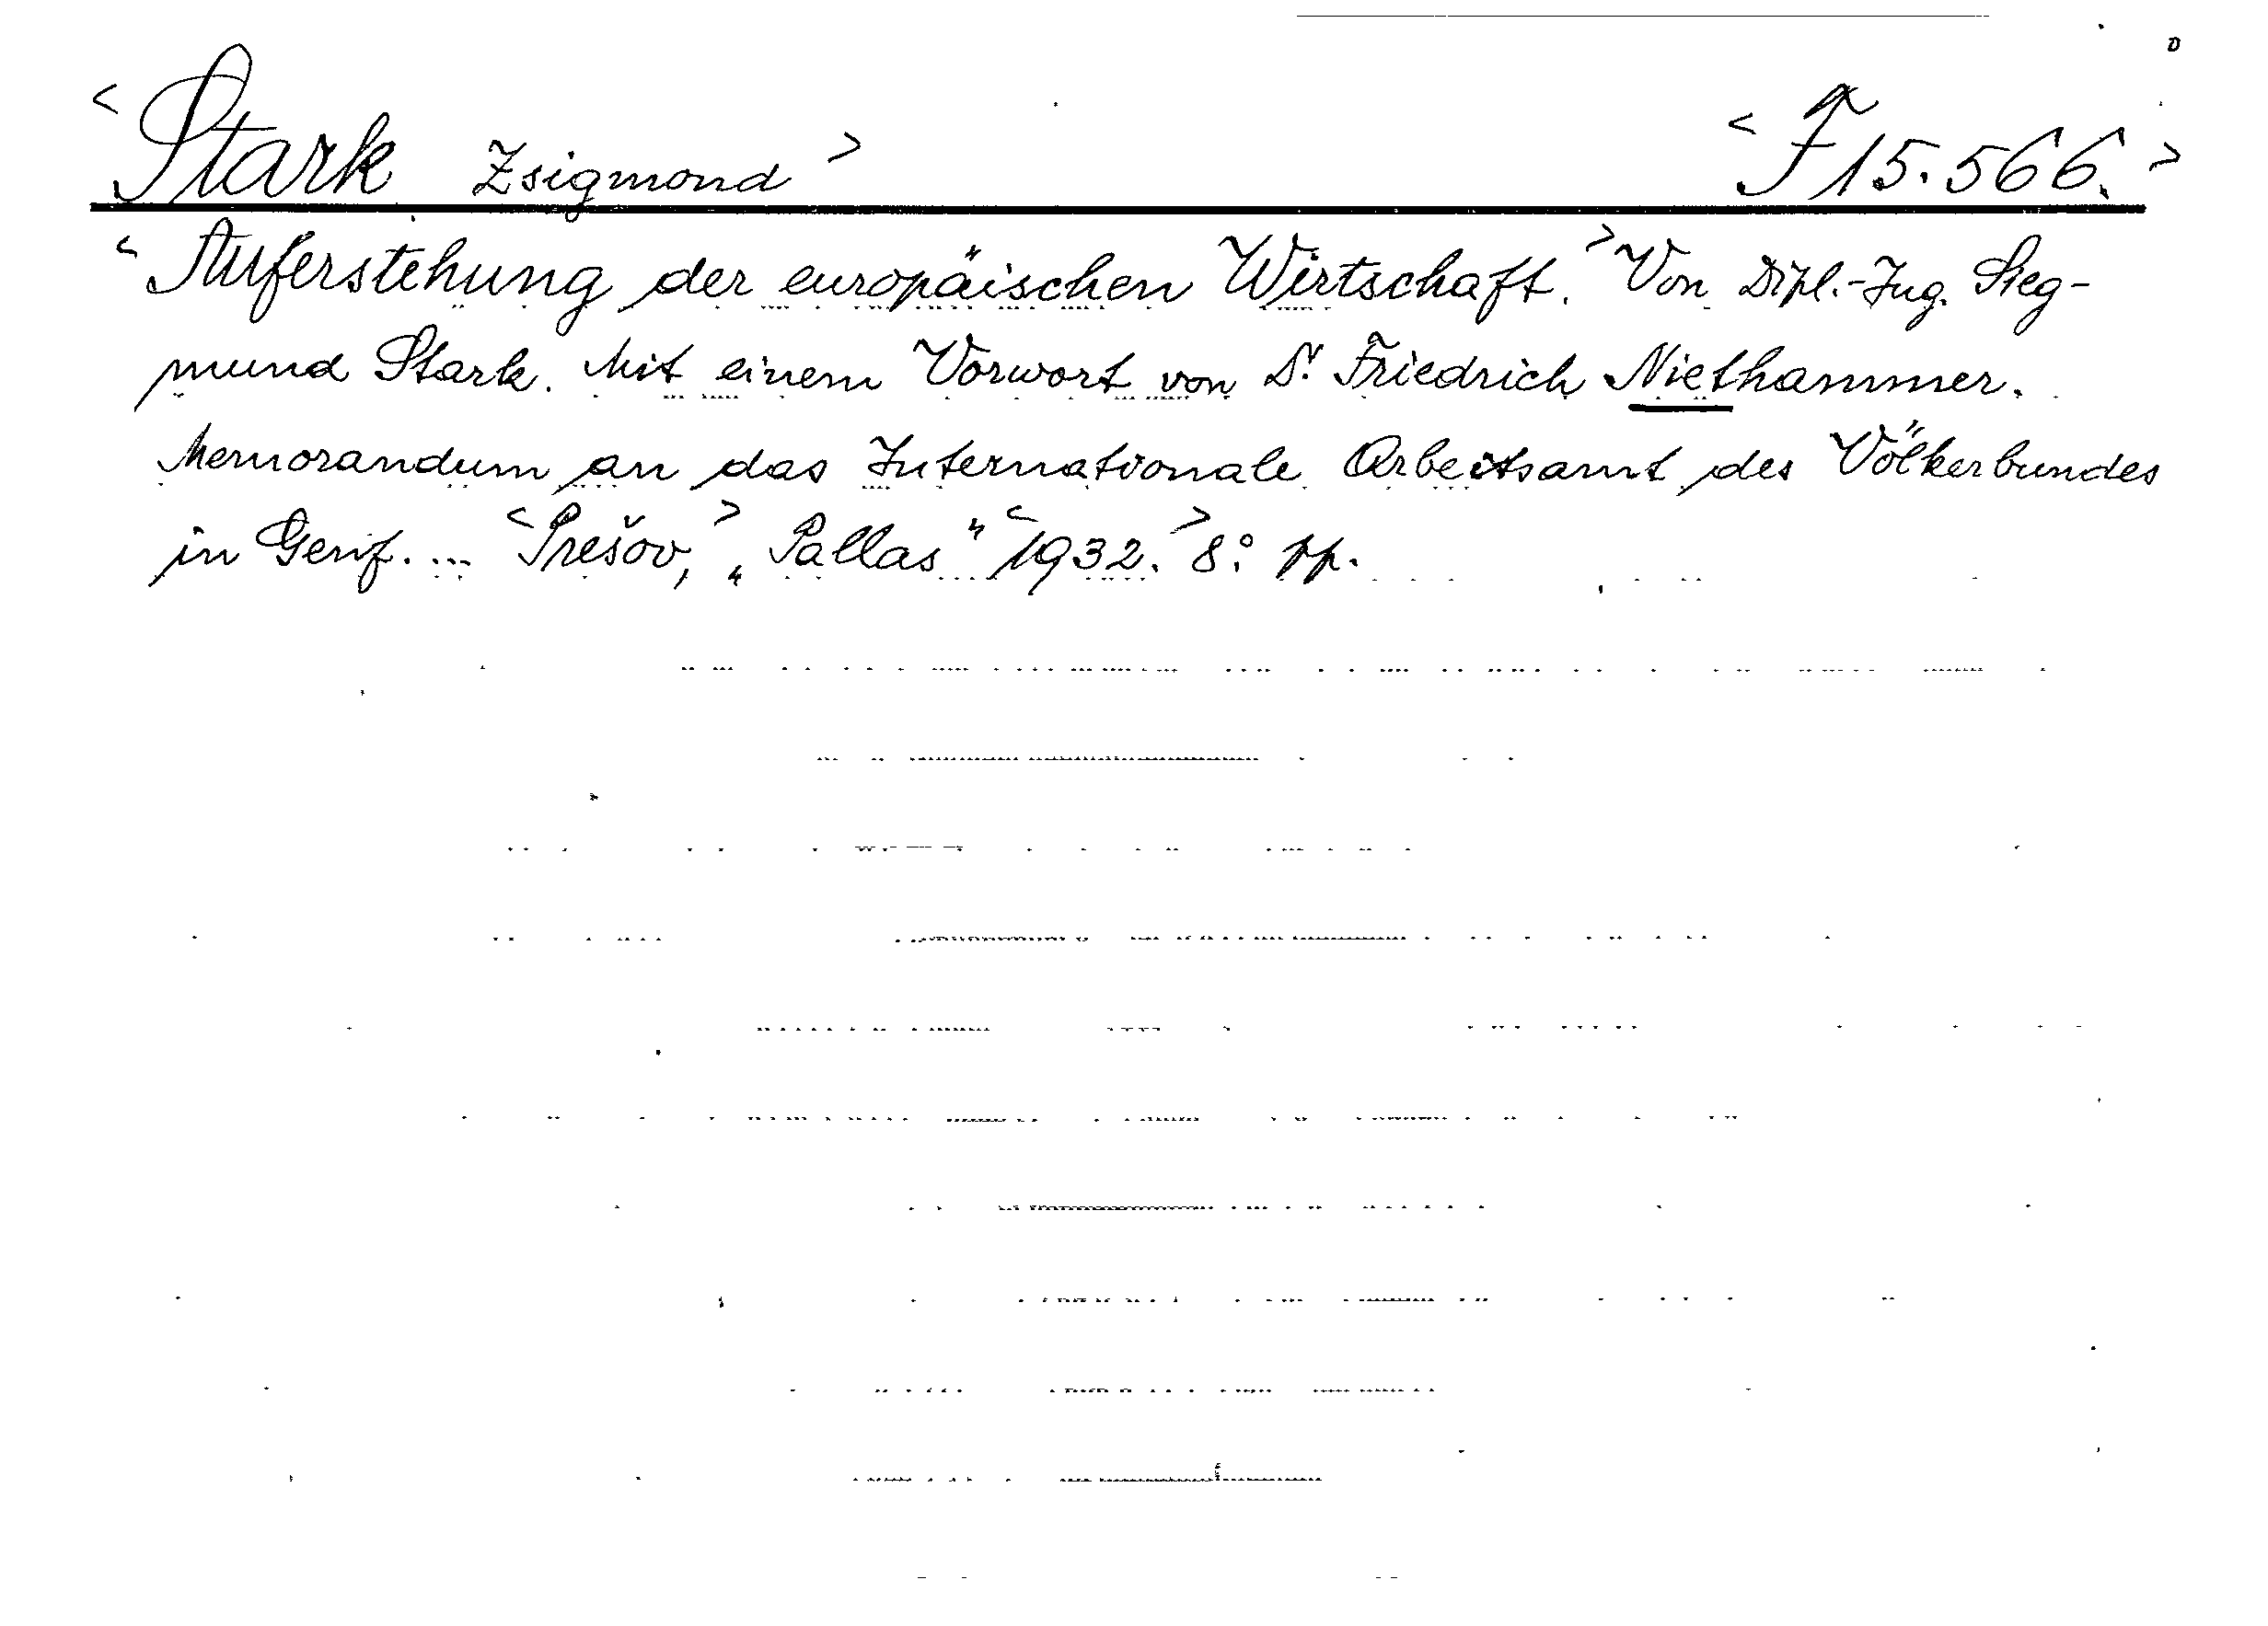 <Stark Zsigmond> <F 15.566.>
<Auferstehung der europäischen Wirtschaft.> Von Dipl.-Ing. Sieg-
mund Stark. Mit einem Vorwort von Dr. Friedrich Niethammer.
Memorandum an das Internationale Arbeitsamt des Völkerbundes
in Genf. ... <Prešov,> „Pallas" <1932.> 8:° pp.